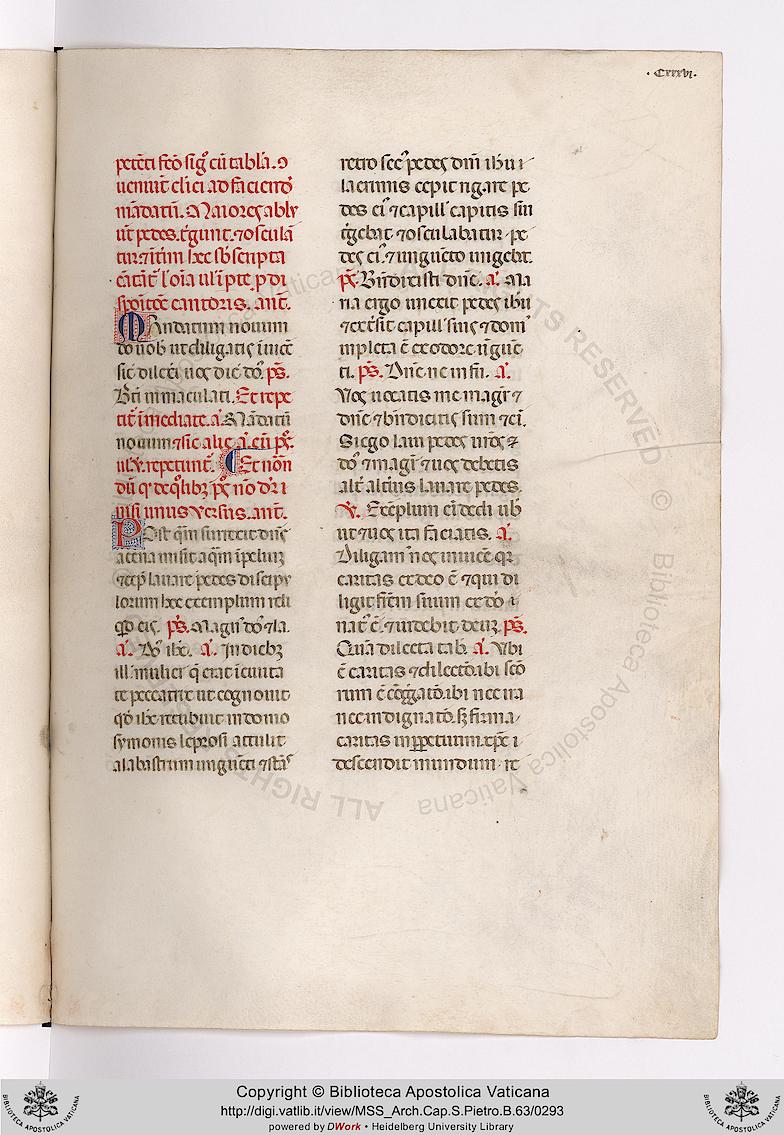 · Cxxxvi ·
petēti fc̄o sig° cū tabl'a. ꝯ
ueniūt cl'ici ad faciend'
mādatū. Maiores ablu
ūt pedes. t'gunt. ⁊ osculā
tur ⁊ īt'im hec sb̄scripta
cātāt' l' oīa ul' ī pte. ꝑ di
spōitōē cantoris. ant̄.
Mandatum nouum
do uob' ut diligatis īuicē
sic dilexi uos dic̄ dō. p̄s.
Bt̄i inmaculati. Et repe
tit' īmediate. a'. Mādatū
nouum ⁊ sic alie a'. cū p̄s.
ul' v̄. repetunt'. C Et notān
dū qꝫ de q̄libꝫ p̄s no dr̄ i
nisi unus versus. ant̄.
Post qm̄ surrexit dn̄s
a cena misit aq̄m ī peluiꝫ
⁊ cep̄ lauare pedes discipu
lorum hec exemplum reli
qd̄ eis. p̄s. Magn' dō' ⁊ la.
a'. Dō' ihc̄. a'. In diebꝫ
ill' mulier q̄ erat ī ciuita
te peccatrix ut cognouit
qd̄ ihc̄ recubuit in domo
symonis leprosi attulit
alabastrum unguēti ⁊ stās
retro sec' pedes dn̄i ihu i
lacrimis cepit rigare pe
des ei' ⁊ capill' capitis sui
t'gebat ⁊ osculabatur pe
des ei' ⁊ unguēto ungebat.
p̄s. Bn̄dixisti dn̄e. a'. Ma
ria ergo unxit pedes ihu
⁊ ext'sit capill' suis ⁊ dom'
inpleta ē ex odore ūguē
ti. p̄s. Dn̄e ne in fu. a'.
Vos uocatis me magr̄ ⁊
dn̄e ⁊ bn̄dicitis sum ⁊ ei.
Si ego laui pedes ur̄os ⁊
dō' ⁊ magr̄ ⁊ uos debetis
alt' alt'ius lauare pedes.
V̄. Exēplum eī dedi uob̄
ut ⁊ uos ita faciatis. a'.
Diligam' nos inuicē qꝛ
caritas ex deo ē ⁊ qui di
ligit frēm suum ex dō' ī
nat' ē. ⁊ uidebit deuꝫ. p̄s.
Quā dilecta tab. a'. Vbi
ē caritas ⁊ dilectō. ibi scō
rum ē cōg̅gatō. ibi nec ira
nec indignatō. sꝫ firma
caritas in ꝑpetuum. xp̄c i
descendit mundum. re
Copyright © Biblioteca Apostolica Vaticana
http://digi.vatlib.it/view/MSS_Arch.Cap.S.Pietro.B.63/0293
powered by DWork • Heidelberg University Library